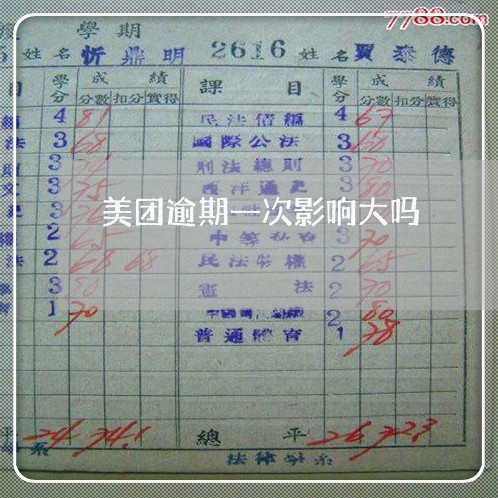 7788.com
學期
姓名 忻鼎明 2616 姓名 賈泰德
目 學分 成績 課目 學分 成績
分數 扣分 實得 分數 扣分 實得
4 81 民法債編 4 67
法 3 68 國際公法 3 60
3 刑法總則 3 70
文 3 75 西洋通史 3 80
美团逾期一次影响大吗
2 65 3 70
法 2 68 68 民法物權 2 65
3 80 憲法 2 70
1 70 2 80
普通體育 1 78
平 24 74.1 總平 26 72.3
系 法律學系